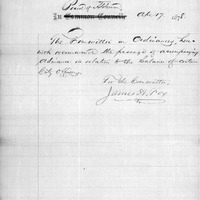 Board of Aldermen
In Common Council, Apl. 17, 1878.
The Committee on Ordinances, here-
with recommend the passage of accompanying
Ordinance in relation to the Salaries of certain
City Officers.
For the Committee,
James A. Fox